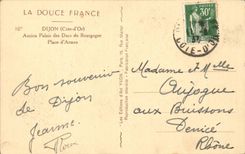 LA DOUCE FRANCE
DIJON (Côte-d'Or)
Ancien Palais des Ducs de Bourgogne
Place d'Armes
30c
COTE-D'OR
Bon souvenir
de Dijon
Jeanne.
Madame et Mlle
aux Buissons
Denicé
Rhône